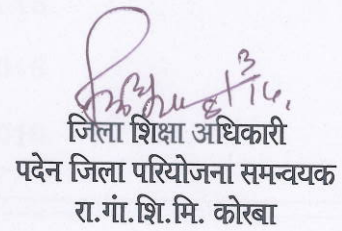 जिला शिक्षा अधिकारी
पदेन जिला परियोजना समन्वयक
रा.गां.शि.मि. कोरबा